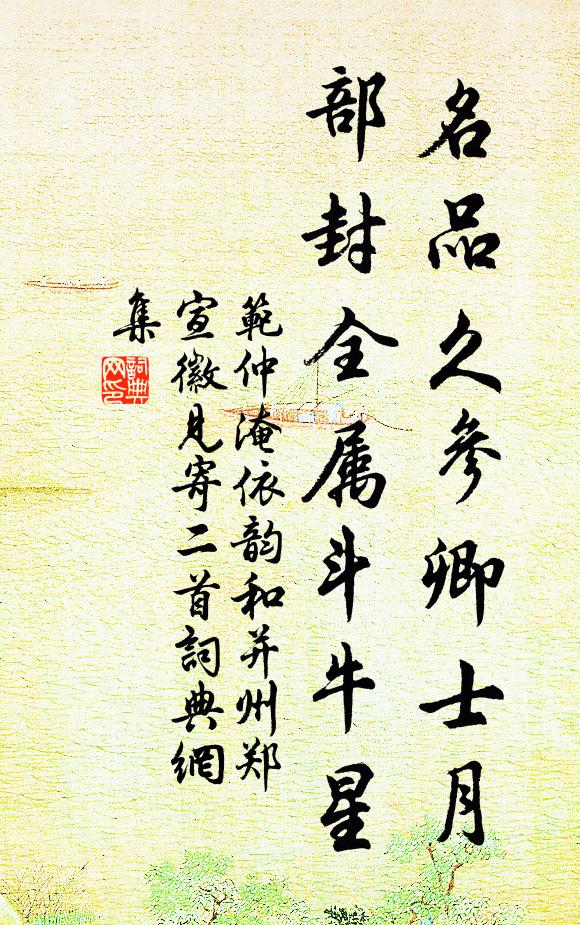 名品久參卿士月
部封全属斗牛星
範仲淹依韵和并州郑
宣徽見寄二首詞典網
集
詞典
网印